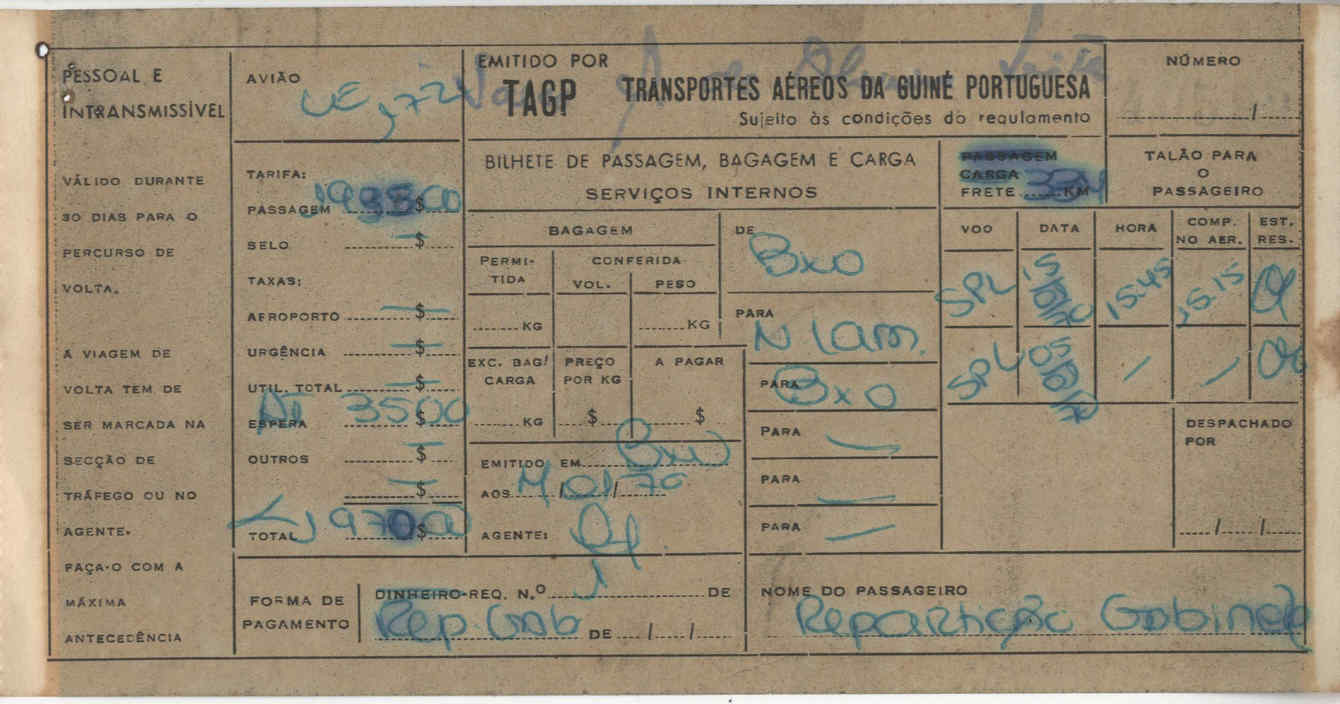 PESSOAL E
INTRANSMISSÍVEL
VÁLIDO DURANTE
30 DIAS PARA O
PERCURSO DE
VOLTA.
A VIAGEM DE
VOLTA TEM DE
SER MARCADA NA
SECÇÃO DE
TRÁFEGO OU NO
AGENTE.
FAÇA-O COM A
MÁXIMA
ANTECEDÊNCIA
AVIÃO
TARIFA:
PASSAGEM $
SELO $
TAXAS:
AEROPORTO $
URGÊNCIA $
UTIL. TOTAL $
ESPERA 3500
OUTROS $
$
TOTAL $
EMITIDO POR
TAGP TRANSPORTES AÉREOS DA GUINÉ PORTUGUESA
Sujeito às condições do regulamento
BILHETE DE PASSAGEM, BAGAGEM E CARGA
SERVIÇOS INTERNOS
PASSAGEM
CARGA
FRETE KM
NÚMERO
/
TALÃO PARA
O
PASSAGEIRO
BAGAGEM
PERMI-
TIDA
CONFERIDA
VOL. PESO
KG KG
EXC. BAG/
CARGA
PREÇO
POR KG
A PAGAR
KG $ $
EMITIDO EM Bxo
AOS / /70
AGENTE:
DE
Bxo
PARA
N Lam.
PARA
Bxo
PARA
PARA
PARA
VOO DATA HORA COMP. NO AER. EST. RES.
SPL 15.45 15.15
SPL
DESPACHADO
POR
/ /
FORMA DE
PAGAMENTO
DINHEIRO-REQ. N.º DE
Rep. Gab DE / /
NOME DO PASSAGEIRO
Repartição Gabinete